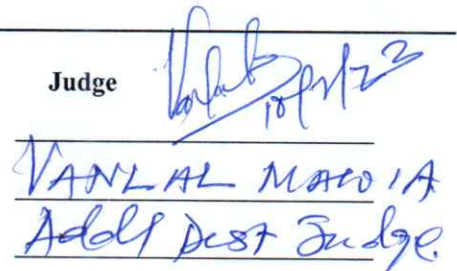 Judge
VANLAL MAWIA
Addl Dist Judge.